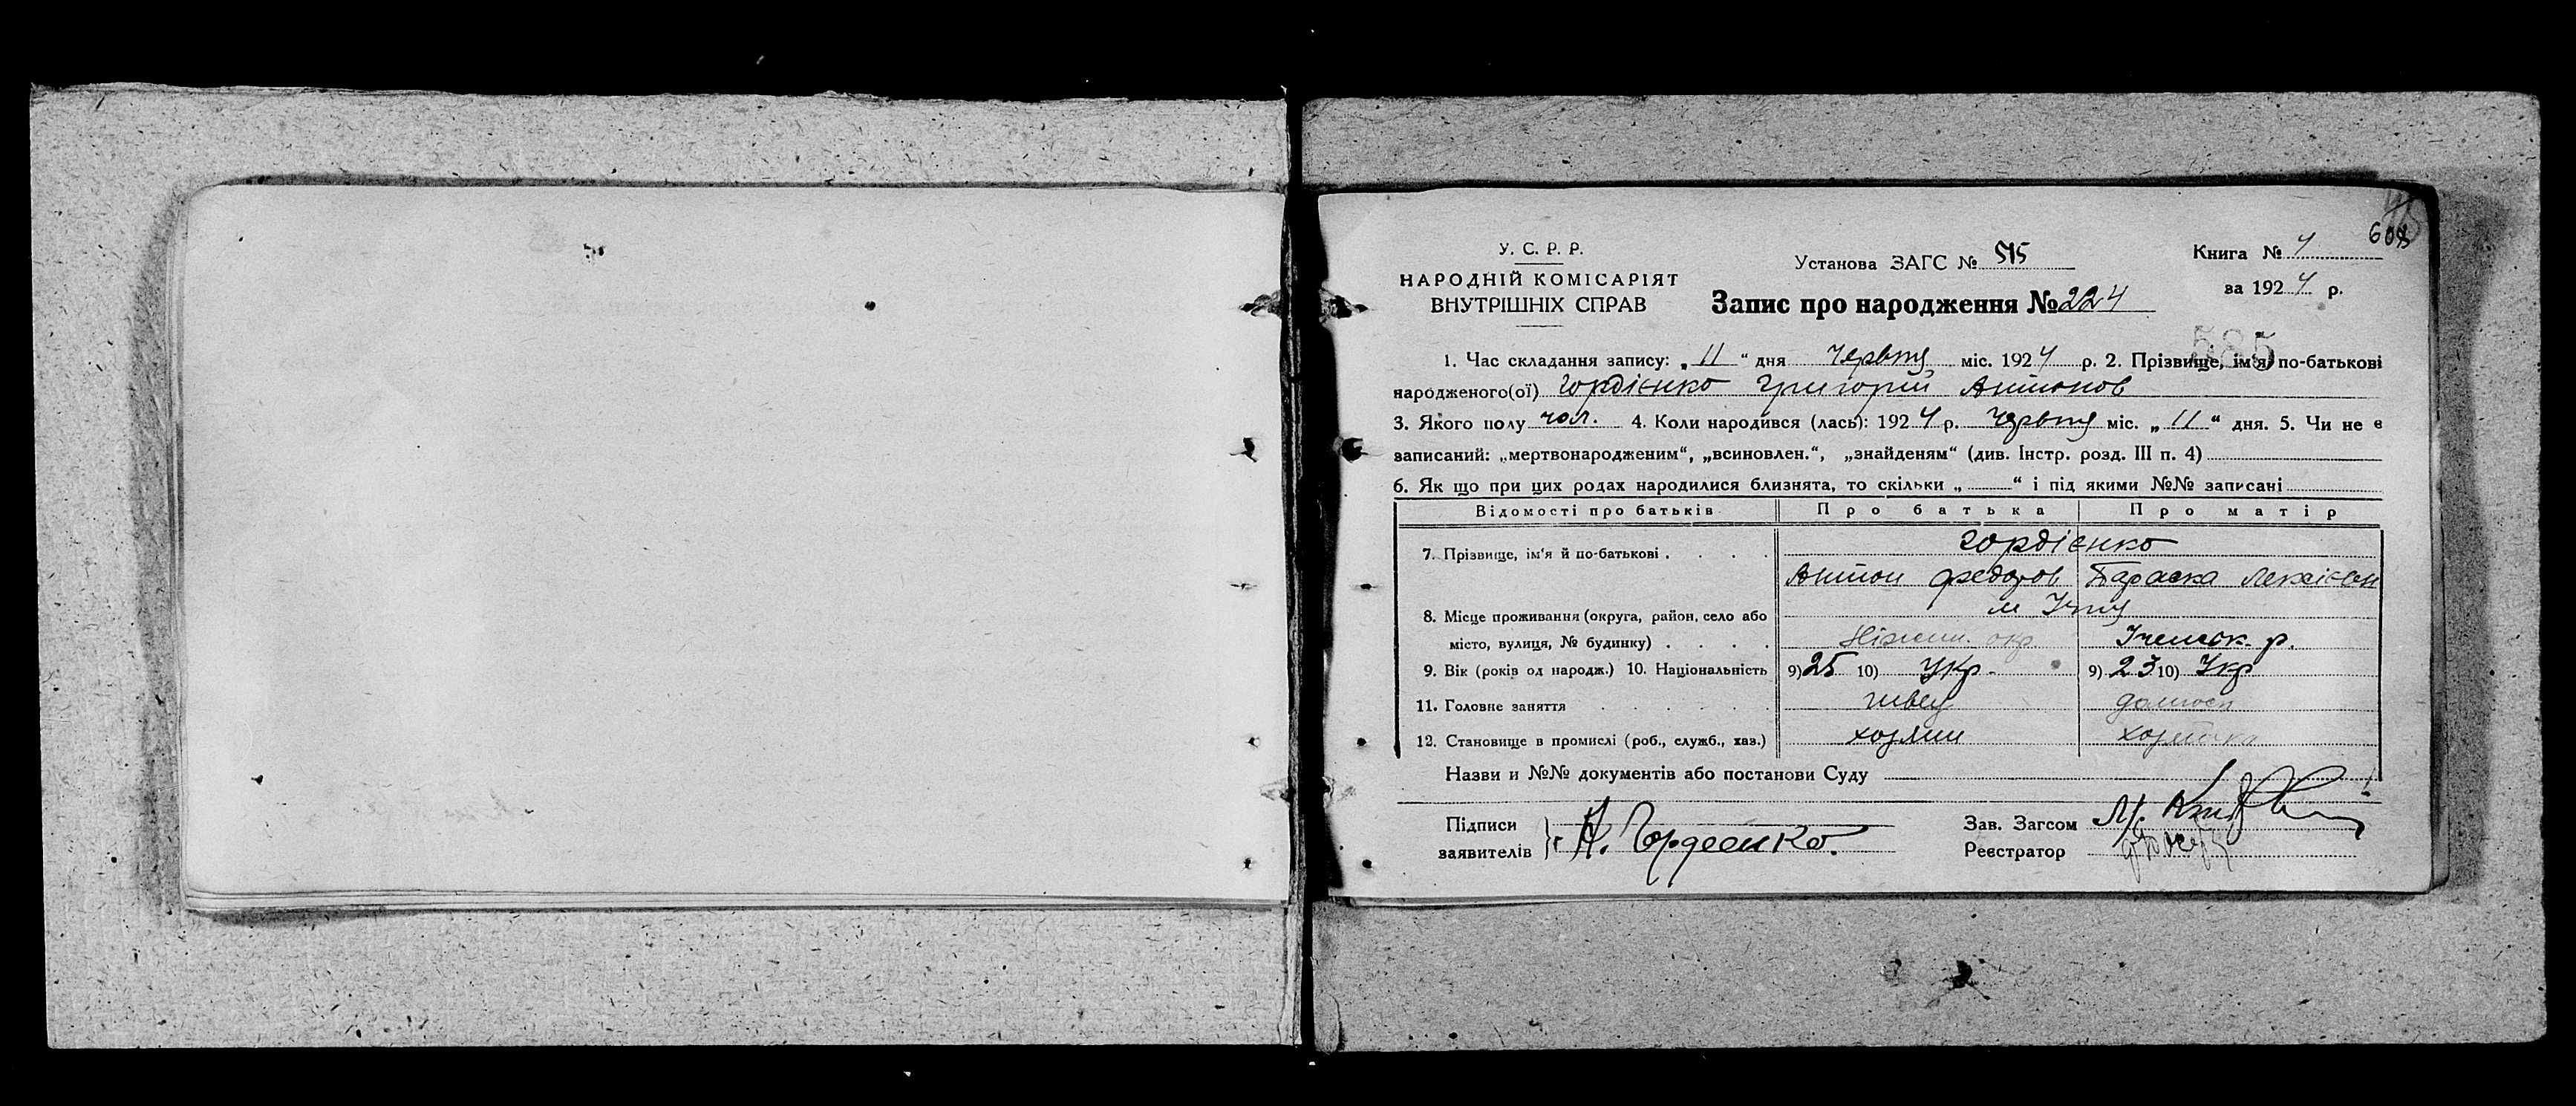 608
У. С. Р. Р.
НАРОДНІЙ КОМІСАРІЯТ
ВНУТРІШНІХ СПРАВ
Установа ЗАГС № 515
Книга № 4
за 1924 р.
Запис про народження № 224
585
1. Час складання запису: „11“ дня Червня міс. 1924 р. 2. Прізвище, ім'я, по-батькові
народженого(ої) Гордієнко Григорий Антонов
3. Якого полу чол. 4. Коли народився (лась): 1924 р. Червня міс. „11“ дня. 5. Чи не є
записаний: „мертвонародженим“, „всиновлен.“, „знайденям“ (див. Інстр. розд. III п. 4)
6. Як що при цих родах народилися близнята, то скільки „ “ і під якими №№ записані
Відомості про батьків Про батька Про матір
7. Прізвище, ім'я й по-батькові Гордієнко
Антон Федотов Параска
8. Місце проживання (округа, район, село або м Ічня
місто, вулиця, № будинку) Ніжин. окр. Іченськ. р.
9. Вік (років од народж.) 10. Національність 9) 25 10) Укр. 9) 23 10) Укр
11. Головне заняття швець домгосп
12. Становище в промислі (роб., служб., хаз.) хозяин хозяйка
Назви и №№ документів або постанови Суду
Підписи
заявителів А. Гордеенко.
Зав. Загсом
Реєстратор